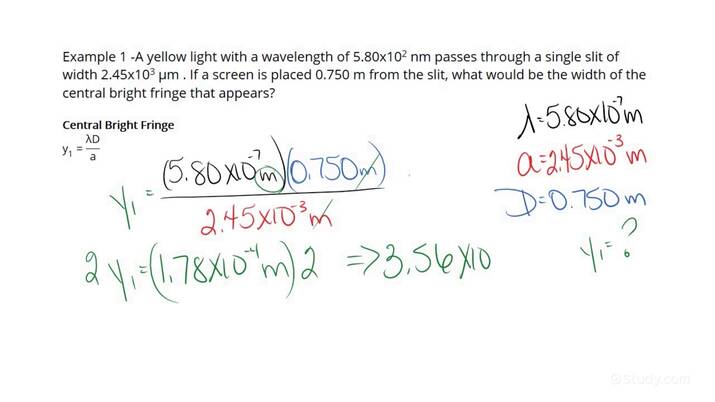 Example 1 -A yellow light with a wavelength of 5.80x10² nm passes through a single slit of
width 2.45x10³ µm . If a screen is placed 0.750 m from the slit, what would be the width of the
central bright fringe that appears?
Central Bright Fringe
y₁ = λD/a
λ=5.80x10⁻⁷m
a=2.45x10⁻³m
D=0.750m
y₁=?
y₁ = (5.80x10⁻⁷m)(0.750m)
2.45x10⁻³m
2 y₁=(1.78x10⁻⁴m)2 ⇒3.56x10
©Study.com